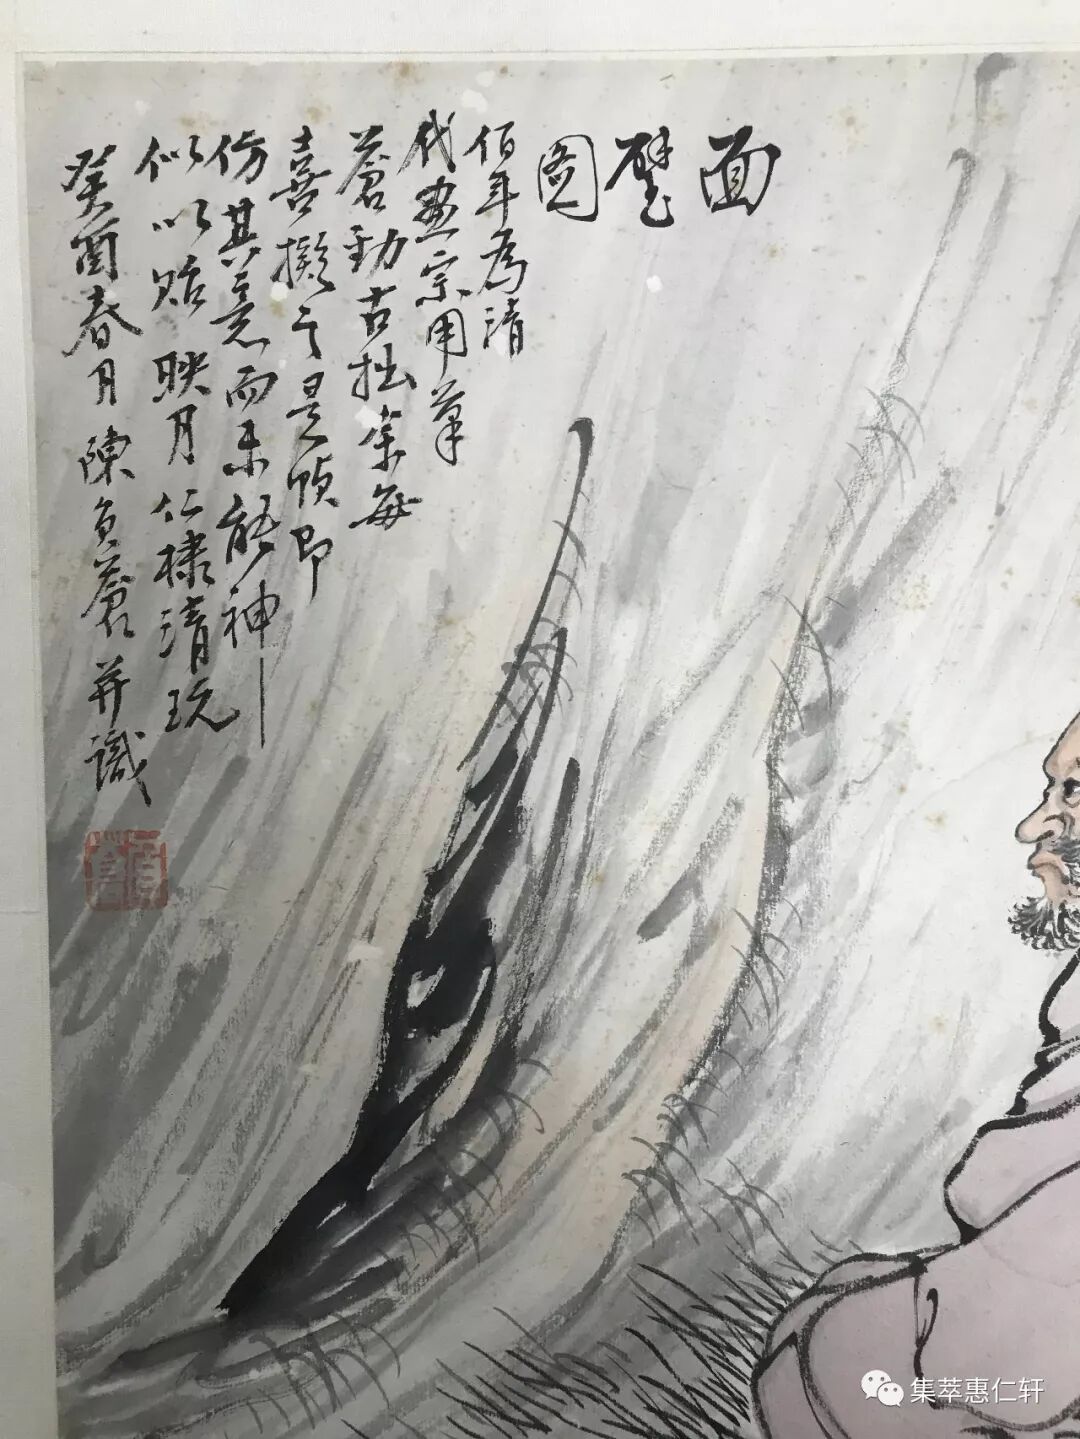 面壁圖
伯年為清
代畫宗用筆
蒼勁古拙余每
喜擬之是幀即
仿其意而未能神
似以貽映月仁棣清玩
癸酉春月陳負蒼并識
負蒼
集萃惠仁轩